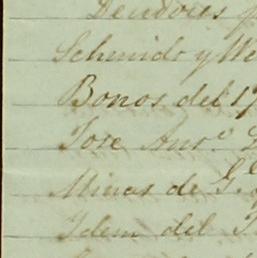 Deudores p
Schmidt y We
Bonos del 17
Jose Anto. L
Minas de G.
Idem del T